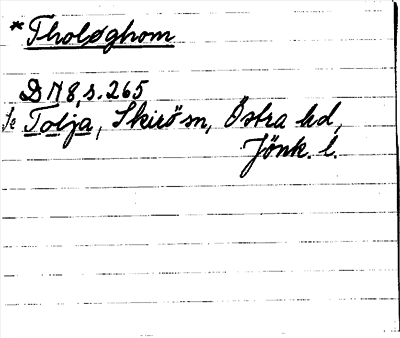 *Tholøghom
D N 8, s. 265
Se Tolja, Skirö sn, Östra hd,
Jönk. l.